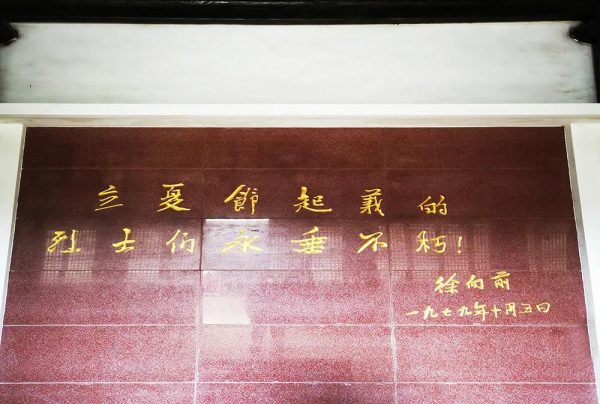 立夏節起義的
烈士们永垂不朽！
徐向前
一九七九年十月五日